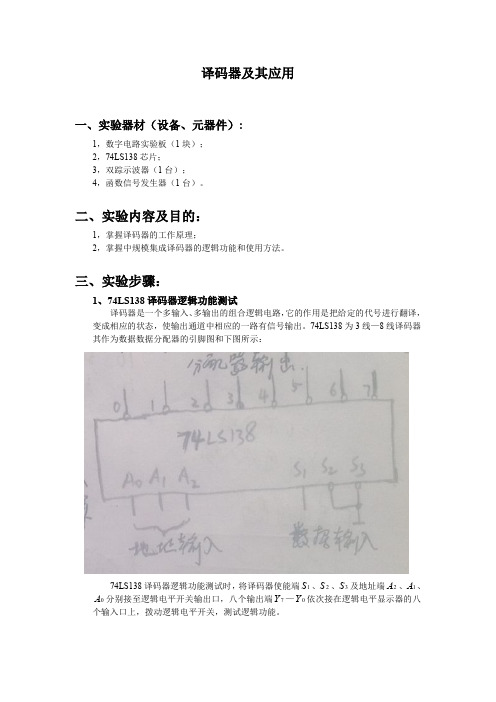 译码器及其应用
一、实验器材（设备、元器件）：
1，数字电路实验板（1块）；
2，74LS138芯片；
3，双踪示波器（1台）；
4，函数信号发生器（1台）。
二、实验内容及目的：
1，掌握译码器的工作原理；
2，掌握中规模集成译码器的逻辑功能和使用方法。
三、实验步骤：
1、74LS138译码器逻辑功能测试
译码器是一个多输入、多输出的组合逻辑电路，它的作用是把给定的代号进行翻译，
变成相应的状态，使输出通道中相应的一路有信号输出。74LS138为3线—8线译码器
其作为数据数据分配器的引脚图和下图所示：
分配器输出
0 1 2 3 4 5 6 7
74LS138
A0 A1 A2 S1 S2 S3
地址输入 数据输入
74LS138译码器逻辑功能测试时，将译码器使能端S1、S2、S3及地址端A2、A1、
A0分别接至逻辑电平开关输出口，八个输出端Y7—Y0依次接在逻辑电平显示器的八
个输入口上，拨动逻辑电平开关，测试逻辑功能。